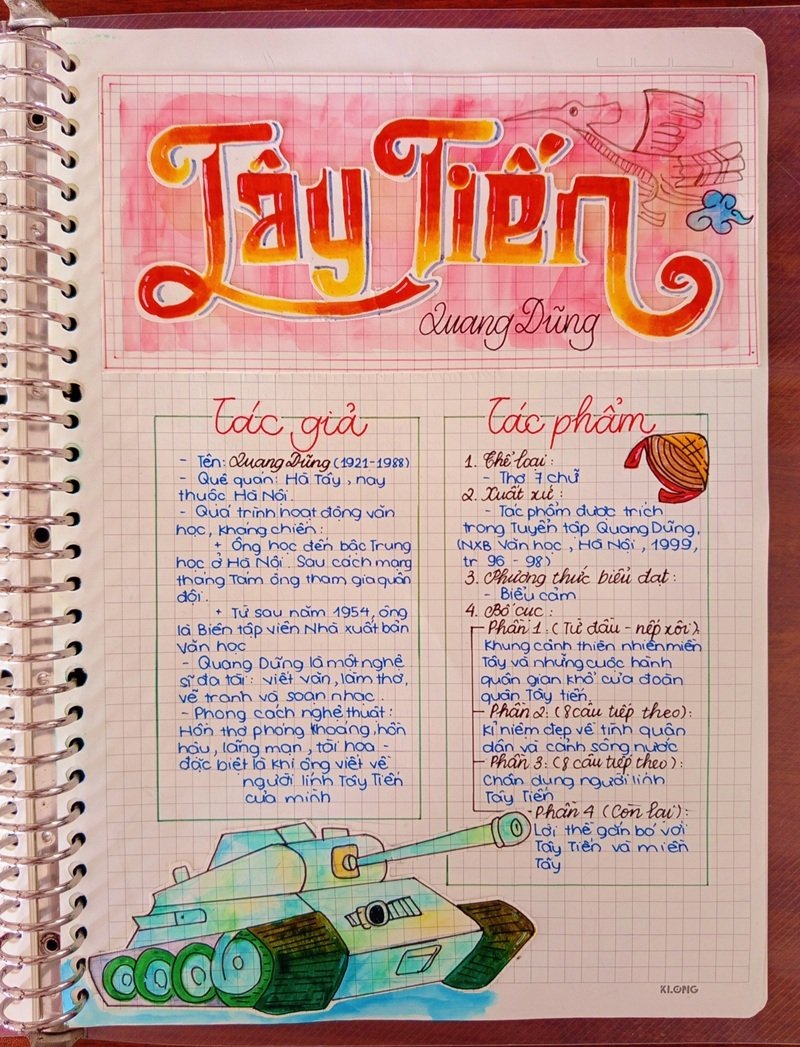 Tây Tiến
Quang Dũng
Tác giả
- Tên: Quang Dũng (1921-1988)
- Quê quán: Hà Tây, nay
thuộc Hà Nội.
- Quá trình hoạt động văn
học, kháng chiến:
+ Ông học đến bậc Trung
học ở Hà Nội. Sau cách mạng
tháng Tám ông tham gia quân
đội.
+ Từ sau năm 1954, ông
là Biên tập viên Nhà xuất bản
Văn học
- Quang Dũng là một nghệ
sĩ đa tài: viết văn, làm thơ,
vẽ tranh và soạn nhạc.
- Phong cách nghệ thuật:
Hồn thơ phóng khoáng, hồn
hậu, lãng mạn, tài hoa -
đặc biệt là khi ông viết về
người lính Tây Tiến
của mình
Tác phẩm
1. Thể loại:
- Thơ 7 chữ
2. Xuất xứ:
- Tác phẩm được trích
trong Tuyển tập Quang Dũng,
(NXB Văn học, Hà Nội, 1999,
tr 96 - 98)
3. Phương thức biểu đạt:
- Biểu cảm
4. Bố cục:
Phần 1: (Từ đầu - nếp xôi):
Khung cảnh thiên nhiên miền
Tây và những cuộc hành
quân gian khổ của đoàn
quân Tây tiến.
Phần 2: (8 câu tiếp theo):
Kỉ niệm đẹp về tình quân
dân và cảnh sông nước
Phần 3: (8 câu tiếp theo):
Chân dung người lính
Tây Tiến
Phần 4 (Còn lại):
Lời thề gắn bó với
Tây Tiến và miền
Tây
KLONG